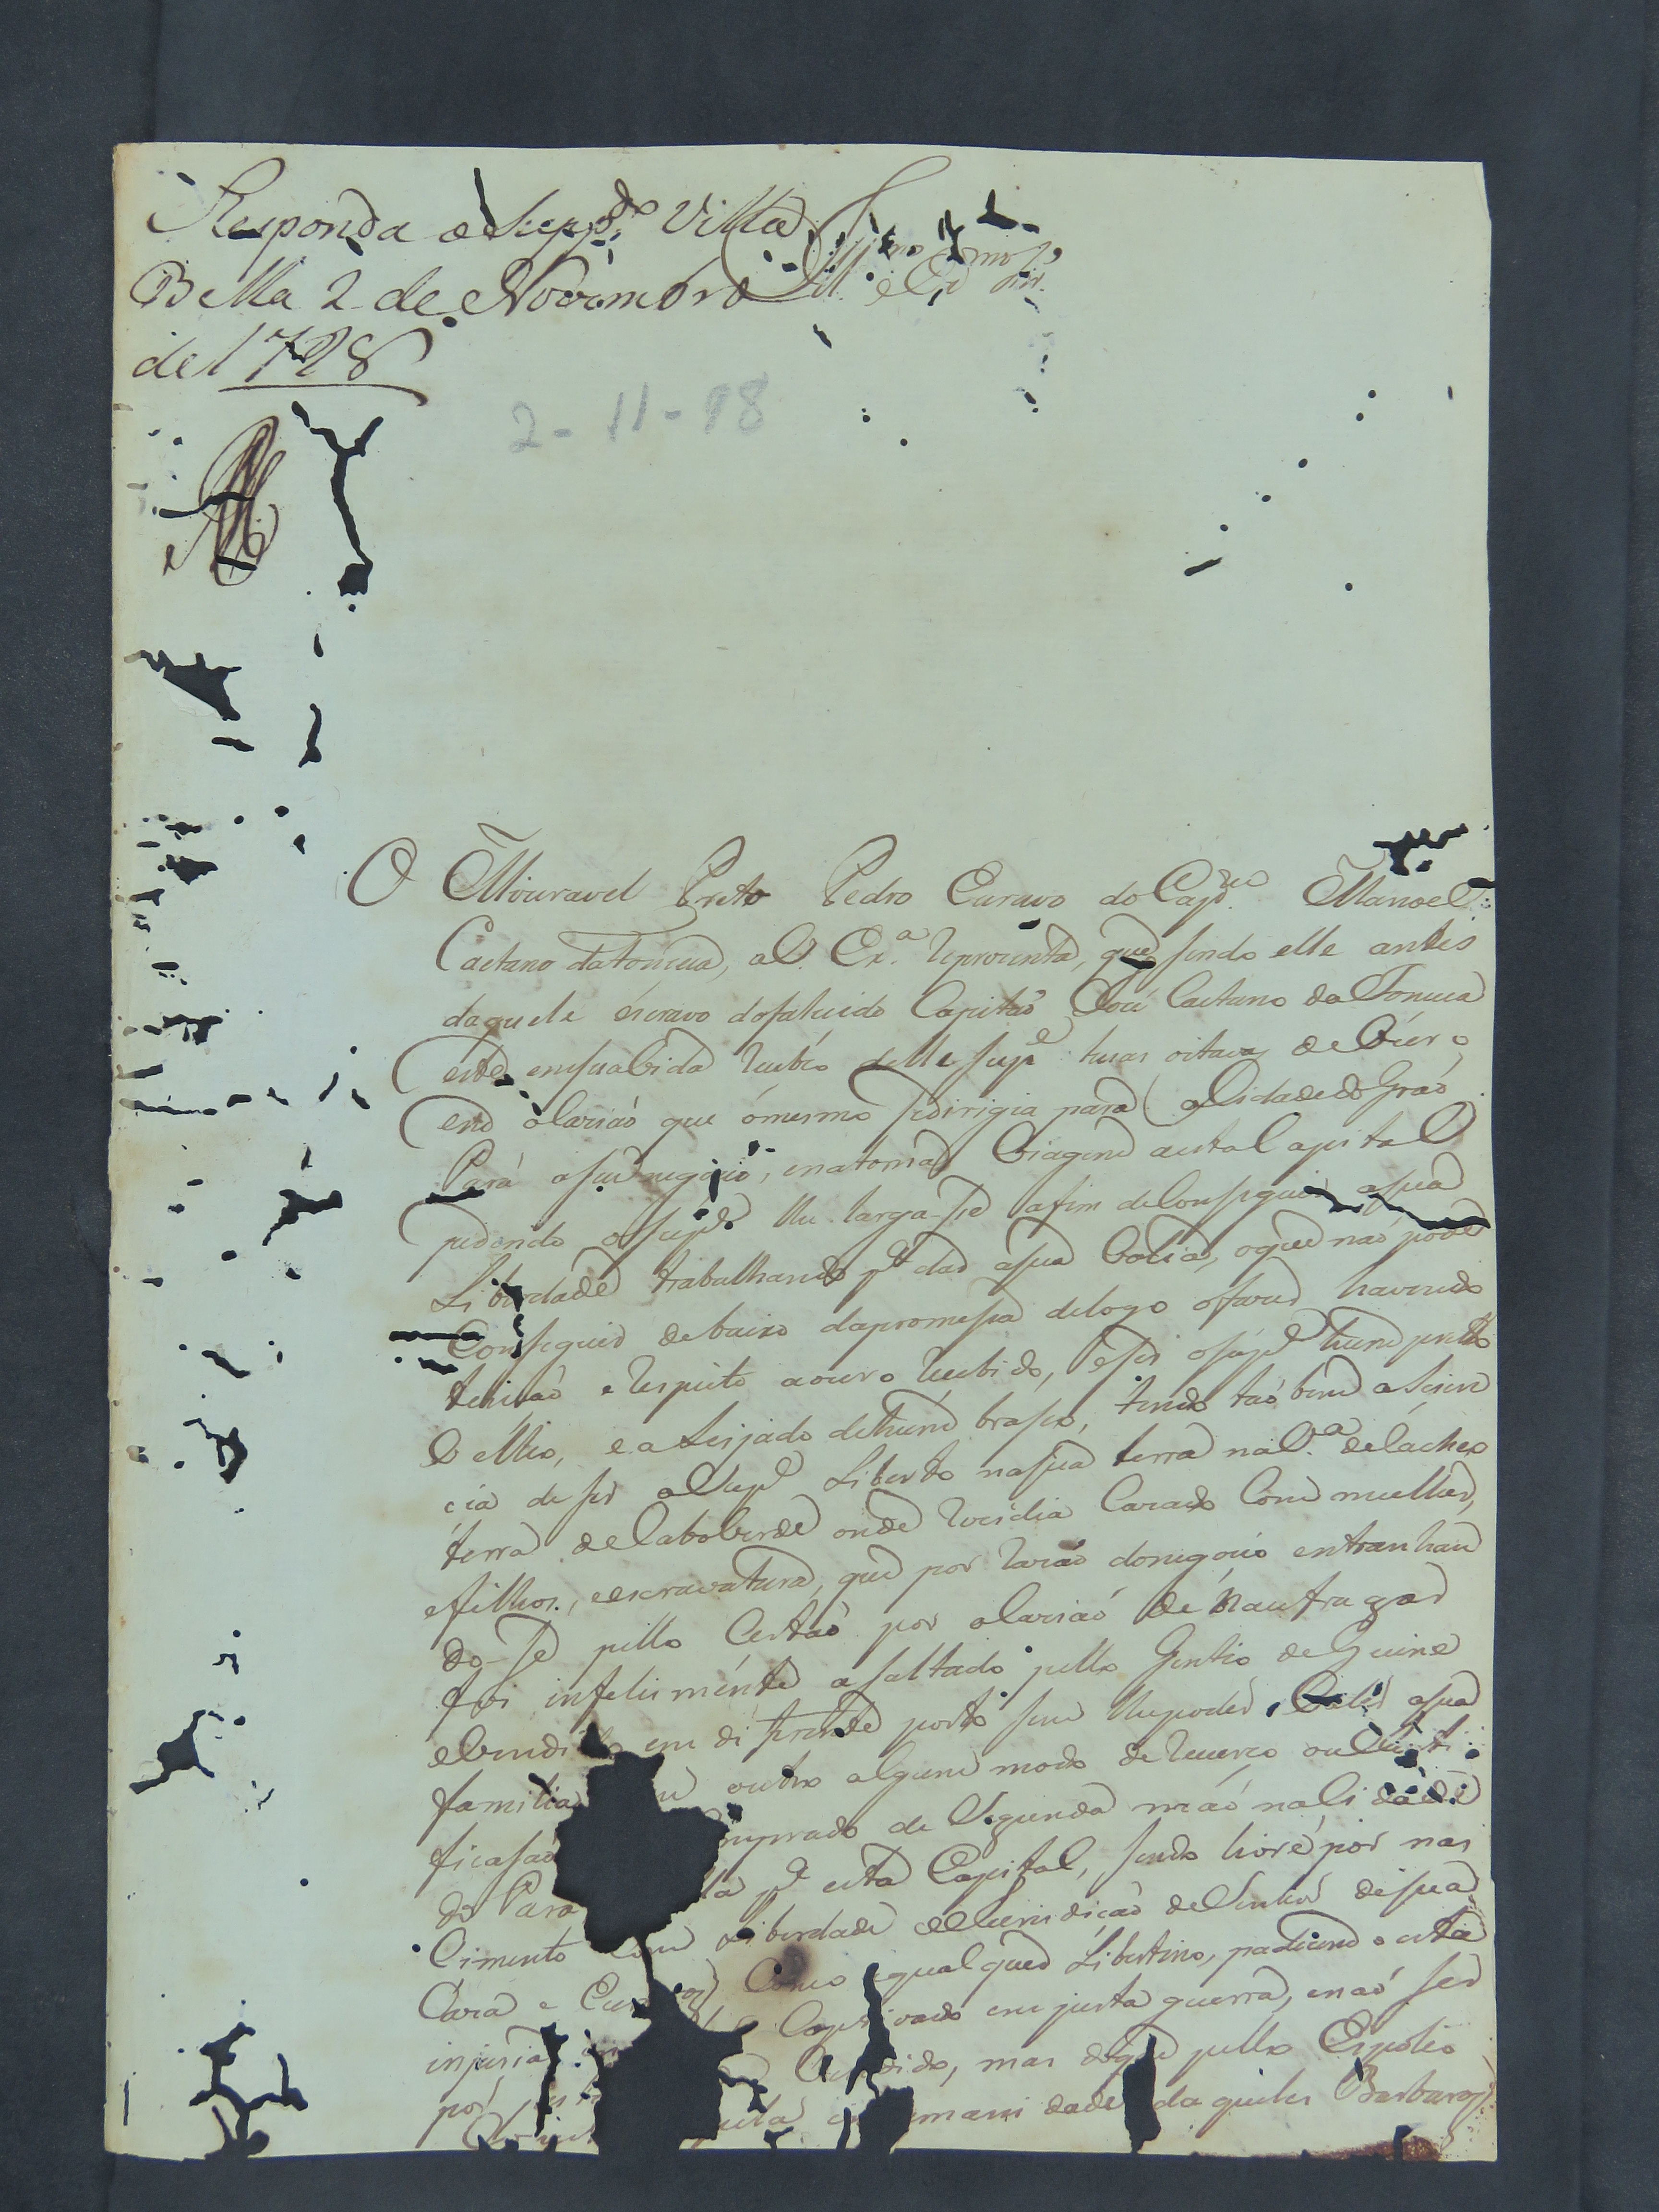 Responda o Supp.do Villa
Bella 2 de Novembro
de 1798
Ill.mo e Ex.mo Snr.
2-11-98
O Mizeravel Preto Pedro Escravo do Cap.m Manoel
Caetano da Fonceca, a V. Ex.a reprezenta, que sendo elle antes
daquele escravo do falecido Capitaõ Jozé Caetano da Fonceca
este em sua vida recebeo delle Supe. oitavas de Ouro
em ocaziaõ que o mesmo se dirigia para a Cidade do Graõ
Pará a seu negocio, e na torna viagem a esta Capital
pedindo o Sup.e lhe larga-se a fim de Conseguir a sua
Liberdade trabalhando p.a dar a sua valia, o que naõ póde
Conseguir debaixo da promessa de logo o fazer havendo
respeito a ouro recebido, e ser o Sup.e hum preto
Velho, e aleijado de hum braso, tendo taõ bem a
cia de ser o Sup.e Liberto na sua terra na V.a de Cacheo
terra de Caboverde onde rezidia Cazado Com mulher,
e filhos, e escravatura, que por razaõ do negocio entranhan
do-se pello Certaõ por ocaziaõ de Naufragar
foi infelismente asaltado pello Gentio de Guiné
e Vendido em diferente porto sem lhe poder Valer a sua
familia outro algum modo de recurço ou
ficasaõ Comprado de Segunda maõ na Cidade
do Para p.a esta Capital, sendo livre por nas
Cimento Com Liberdade de Senhor de sua
Caza e Como qualquer Libertino, padecendo esta
injuria Captivado em justa guerra, e naõ ser
por Vendido, mas do que pello Espolio
manidade daqueles Barbaros